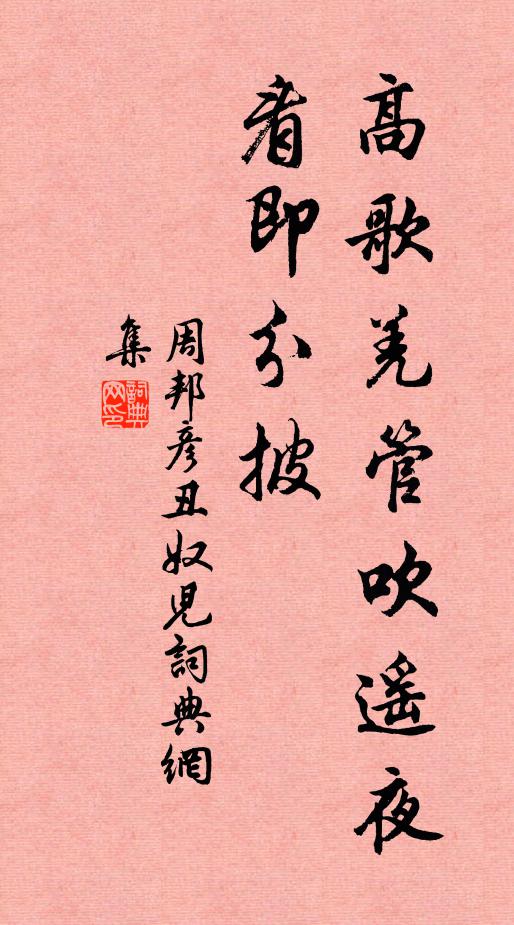 高歌羌管吹遥夜
看即分披
周邦彦丑奴兒詞典網
集
詞典
网印